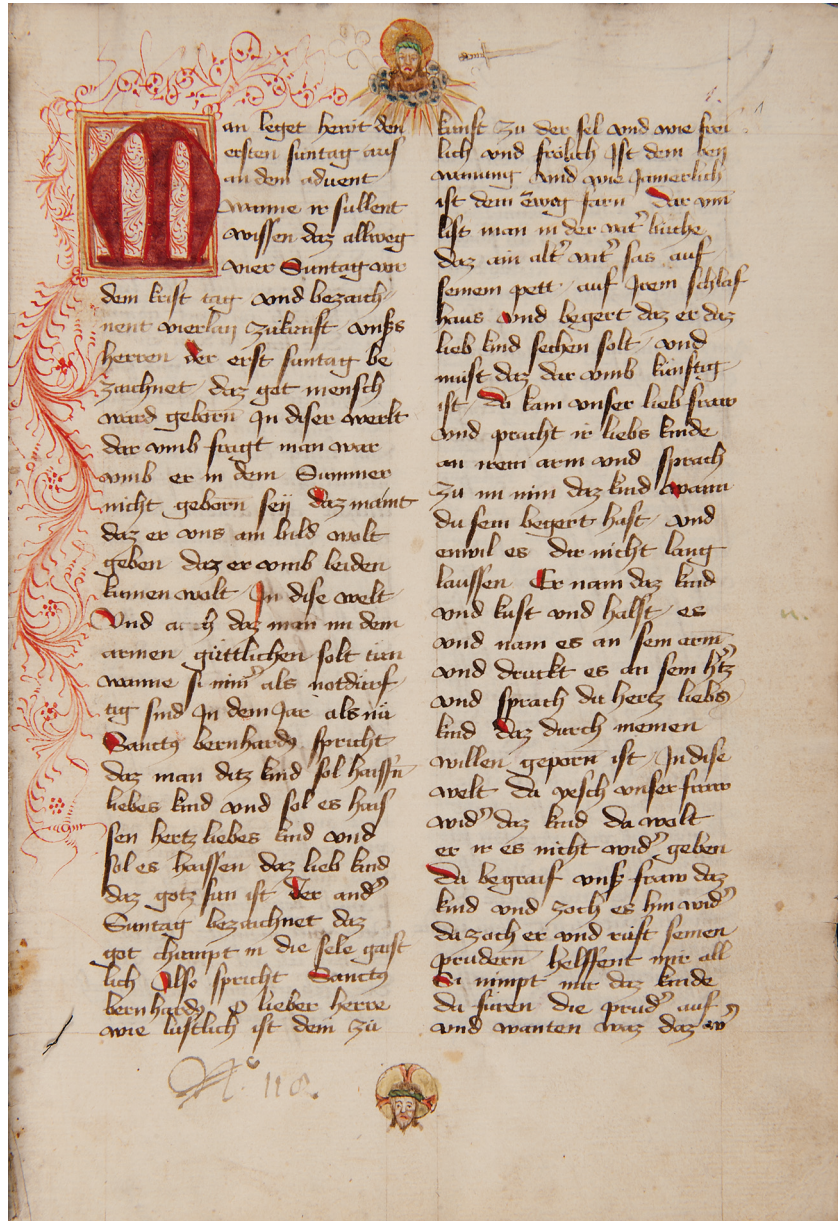 Man leget hewt den
ersten suntag auf
an dem advent
wanne ir sullent
wissen daz allweg
vier Suntag vor
dem krist tag vnd bezaich
nent vierlay zukunft vnsers
herren Der erst suntag be
zaichnet daz got mensch
ward geborn In diser werlt
dar vmb fragt man war
vmb er in dem Summer
nicht geborn seÿ Daz maint
daz er vns ain bild wolt
geben daz er vmb leiden
kumen wolt In dise welt
Vnd auch daz man im dem
armen güttlichen solt tun
wanne si nimer als notdurf
tig sind In dem Jar als nü
Sanctus bernhardus spricht
daz man ditz kind sol haissen
liebes kind vnd sol es hais
sen hertz liebes kind vnd
sol es haissen daz lieb kind
daz gotz sun ist Der ander
Suntag bezaichnet daz
got chumpt in die sele gaist
lich Also spricht Sanctus
bernhardus O lieber herre
wie lustlich ist dein zu
kunft zu der sel vnd wie frei
lich vnd frölich Ist dein beÿ
wanung vnd wie Jamerlich
ist dein Eweg farn Dar vm
list man in der vater buche
daz ain alter vater sas auf
seinem pett auf Irem schlaf
haus Vnd begert daz er daz
lieb kind sechen solt vnd
must daz dar vmb künftig
ist Da kam vnser lieb fraw
vnd pracht ir liebs kinde
an irem arm vnd sprach
zu im nim daz kind Wann
du sein begert hast vnd
enwil es dir nicht lang
laussen Er nam daz kind
vnd kust vnd halst es
vnd nam es an sein arm
vnd druckt es an sein hertz
vnd sprach du hertz liebs
kind Daz durch meinen
willen geporn ist In dise
welt Da iesch vnser fraw
wider daz kind da wolt
er ir es nicht wider geben
Da begraif vnser fraw daz
kind vnd zoch es hin wider
da zoch er vnd rüft seinen
prudern helffent mir all
Si nimpt mir daz kinde
da füren die pruder auf
vnd wanten waz daz w
No. 118.